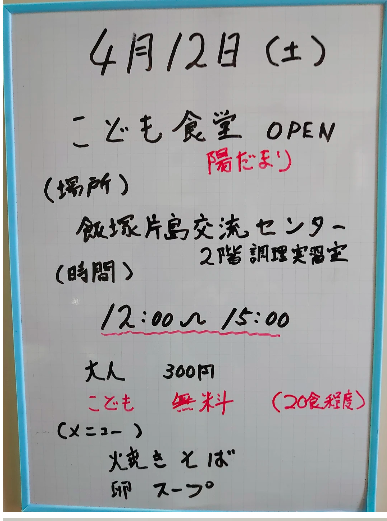 4月12日(土)
こども食堂 OPEN
陽だまり
(場所)
飯塚片島交流センター
2階 調理実習室
(時間)
12:00～15:00
大人 300円
こども 無料 (20食程度)
(メニュー)
焼きそば
卵スープ